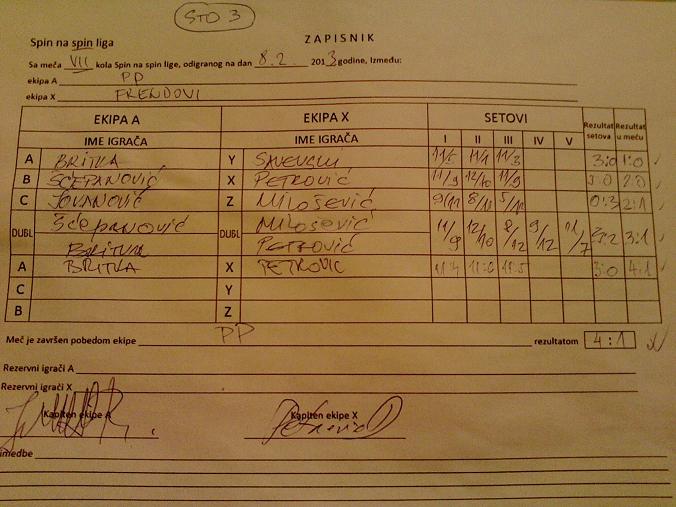 STO 3
ZAPISNIK
Spin na spin liga
Sa meča VII kola Spin na spin lige, odigranog na dan 8.2. 2013 godine, između:
ekipa A PP
ekipa X FRENDOVI
EKIPA A EKIPA X SETOVI Rezultat setova Rezultat u meču
IME IGRAČA IME IGRAČA I II III IV V
A BRITKA Y 11/5 11/1 11/3 3:0 1:0
B ŠĆEPANOVIĆ X PETROVIĆ 11/9 12/10 11/9 3:0 2:0
C JOVANOVIĆ Z MILOŠEVIĆ 9/11 8/11 5/11 0:3 2:1
DUBL Šćepanović BRITKA DUBL MILOŠEVIĆ PETROVIĆ 11/9 12/10 8/12 9/12 11/7 3:2 3:1
A BRITKA X PETROVIC 11:4 11:6 11:5 3:0 4:1
C Y
B Z
Meč je završen pobedom ekipe PP rezultatom 4:1
Rezervni igrači A
Rezervni igrači X
Kapiten ekipe A Kapiten ekipe X
imedbe